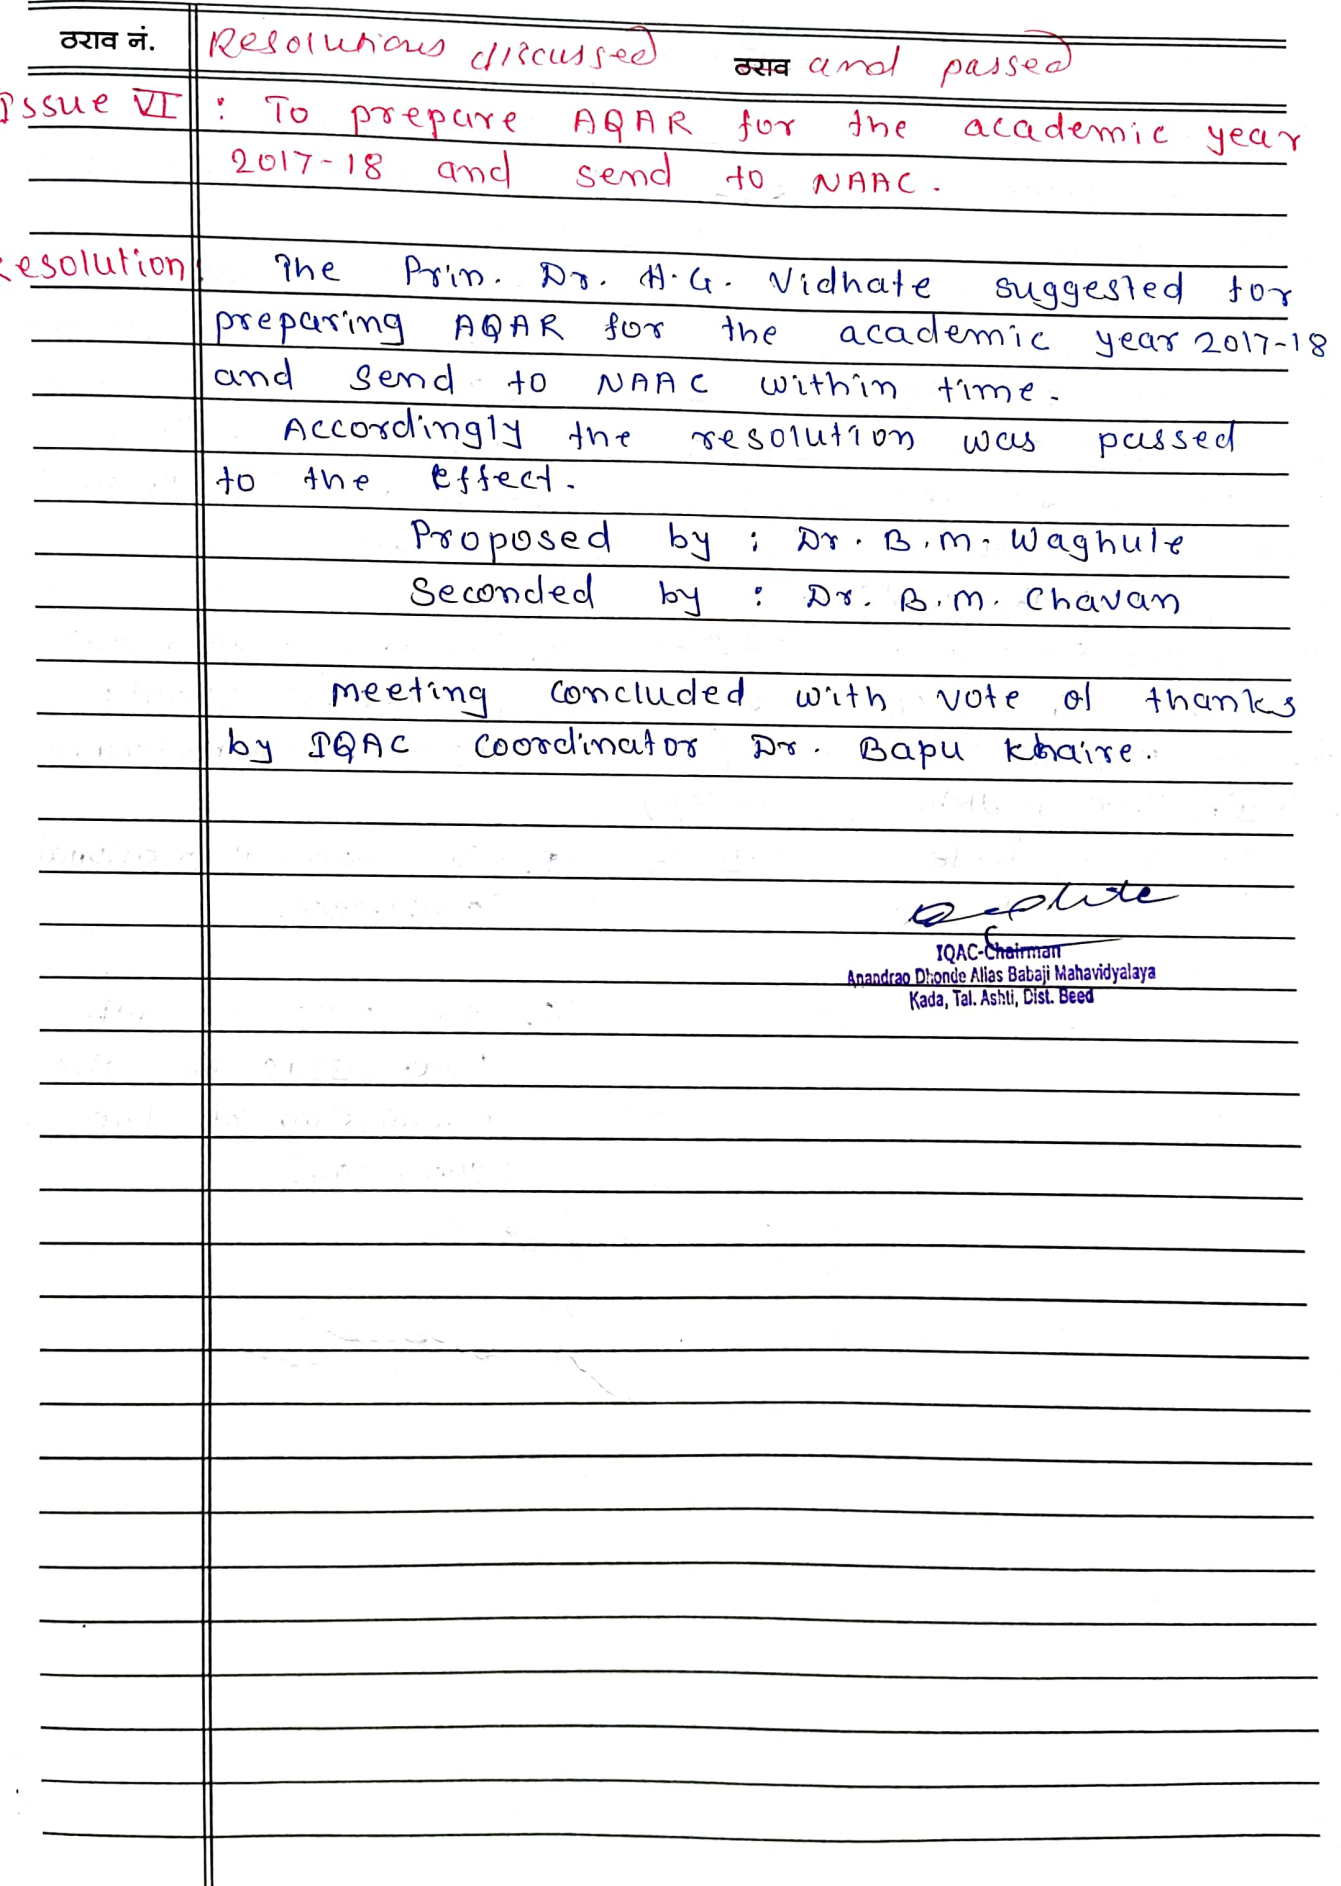 ठराव नं. Resolutions discussed ठराव and passed
Issue VI : To prepare AQAR for the academic year
2017-18 and send to NAAC.
Resolution The Prin. Dr. H.G. Vidhate suggested for
preparing AQAR for the academic year 2017-18
and send to NAAC within time.
Accordingly the resolution was passed
to the effect.
Proposed by : Dr. B.M. Waghule
Seconded by : Dr. B.M. Chavan
meeting concluded with vote of thanks
by IQAC coordinator Dr. Bapu Khaire.
IQAC-Chairman
Anandrao Dhonde Alias Babaji Mahavidyalaya
Kada, Tal. Ashti, Dist. Beed